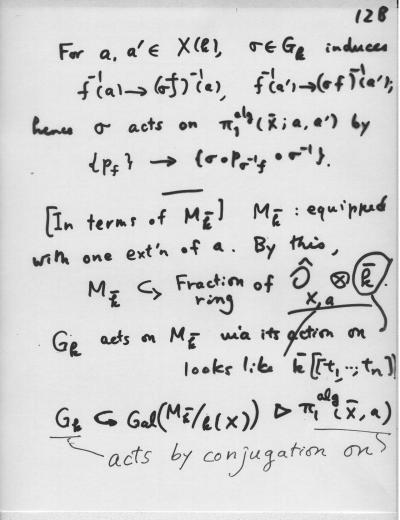 12B
For a, a' ∈ X(k), σ ∈ G_k induces
f⁻¹(a) → (σf)⁻¹(a), f⁻¹(a') → (σf)⁻¹(a');
hence σ acts on π₁^alg(x̄; a, a') by
{p_f} → {σ∘p_{σ⁻¹f}∘σ⁻¹}.
[In terms of M_k̄] M_k̄ : equipped
with one ext'n of a. By this,
M_k̄ ↪ Fraction ring of Ô_{X,a} ⊗ k̄.
G_k acts on M_k̄ via its action on
looks like k̄[[t₁,..,t_n]]
G_k ↪ Gal(M_k̄/k(X)) ▷ π₁^alg(x̄, a)
acts by conjugation on